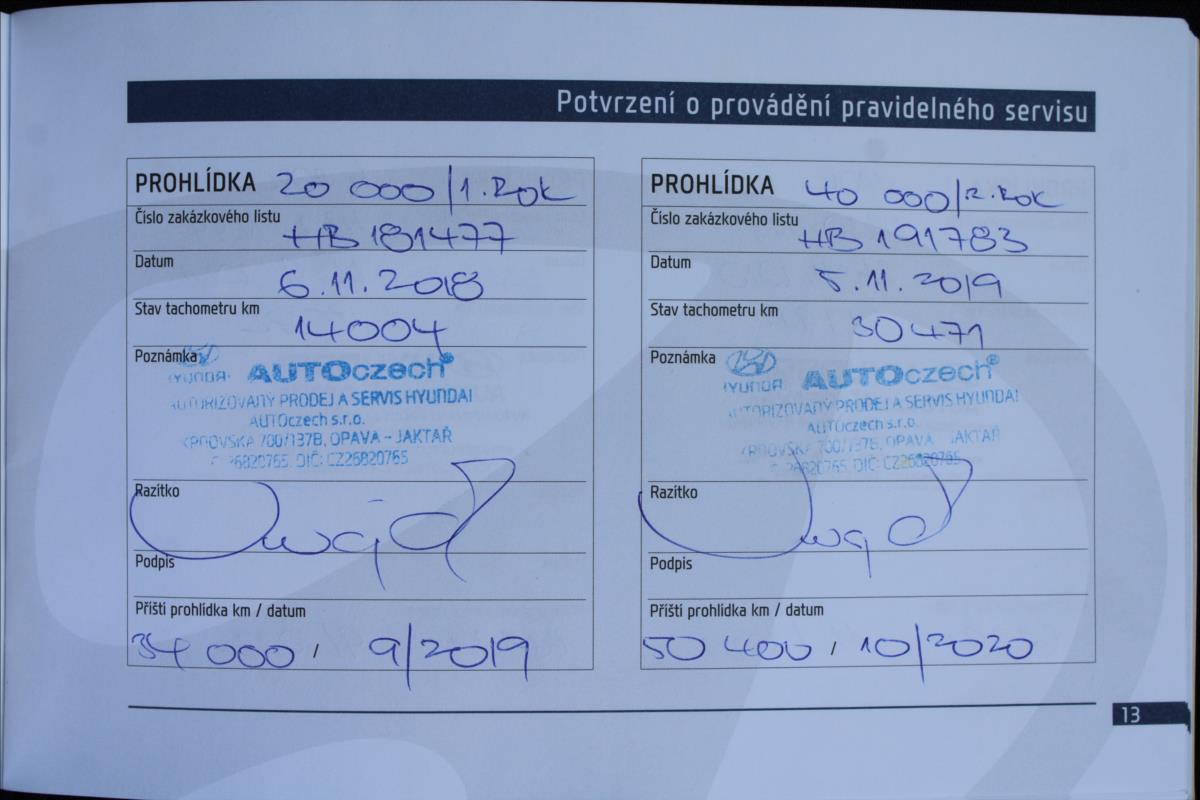 Potvrzení o provádění pravidelného servisu
PROHLÍDKA 20 000/1.ROK
Číslo zakázkového listu
HB181477
Datum
6.11.2018
Stav tachometru km
14004
Poznámka
HYUNDAI AUTOczech
AUTORIZOVANÝ PRODEJ A SERVIS HYUNDAI
AUTOczech s.r.o.
KRNOVSKÁ 700/137B, OPAVA - JAKTAŘ
26820765, DIČ: CZ26820765
Razítko
Podpis
Příští prohlídka km / datum
34 000 / 9/2019
PROHLÍDKA 40 000/2.ROK
Číslo zakázkového listu
HB191783
Datum
5.11.2019
Stav tachometru km
30471
Poznámka
HYUNDAI AUTOczech
AUTORIZOVANÝ PRODEJ A SERVIS HYUNDAI
AUTOczech s.r.o.
KRNOVSKÁ 700/137B, OPAVA - JAKTAŘ
26820765, DIČ: CZ26820765
Razítko
Podpis
Příští prohlídka km / datum
50 400 / 10/2020
13